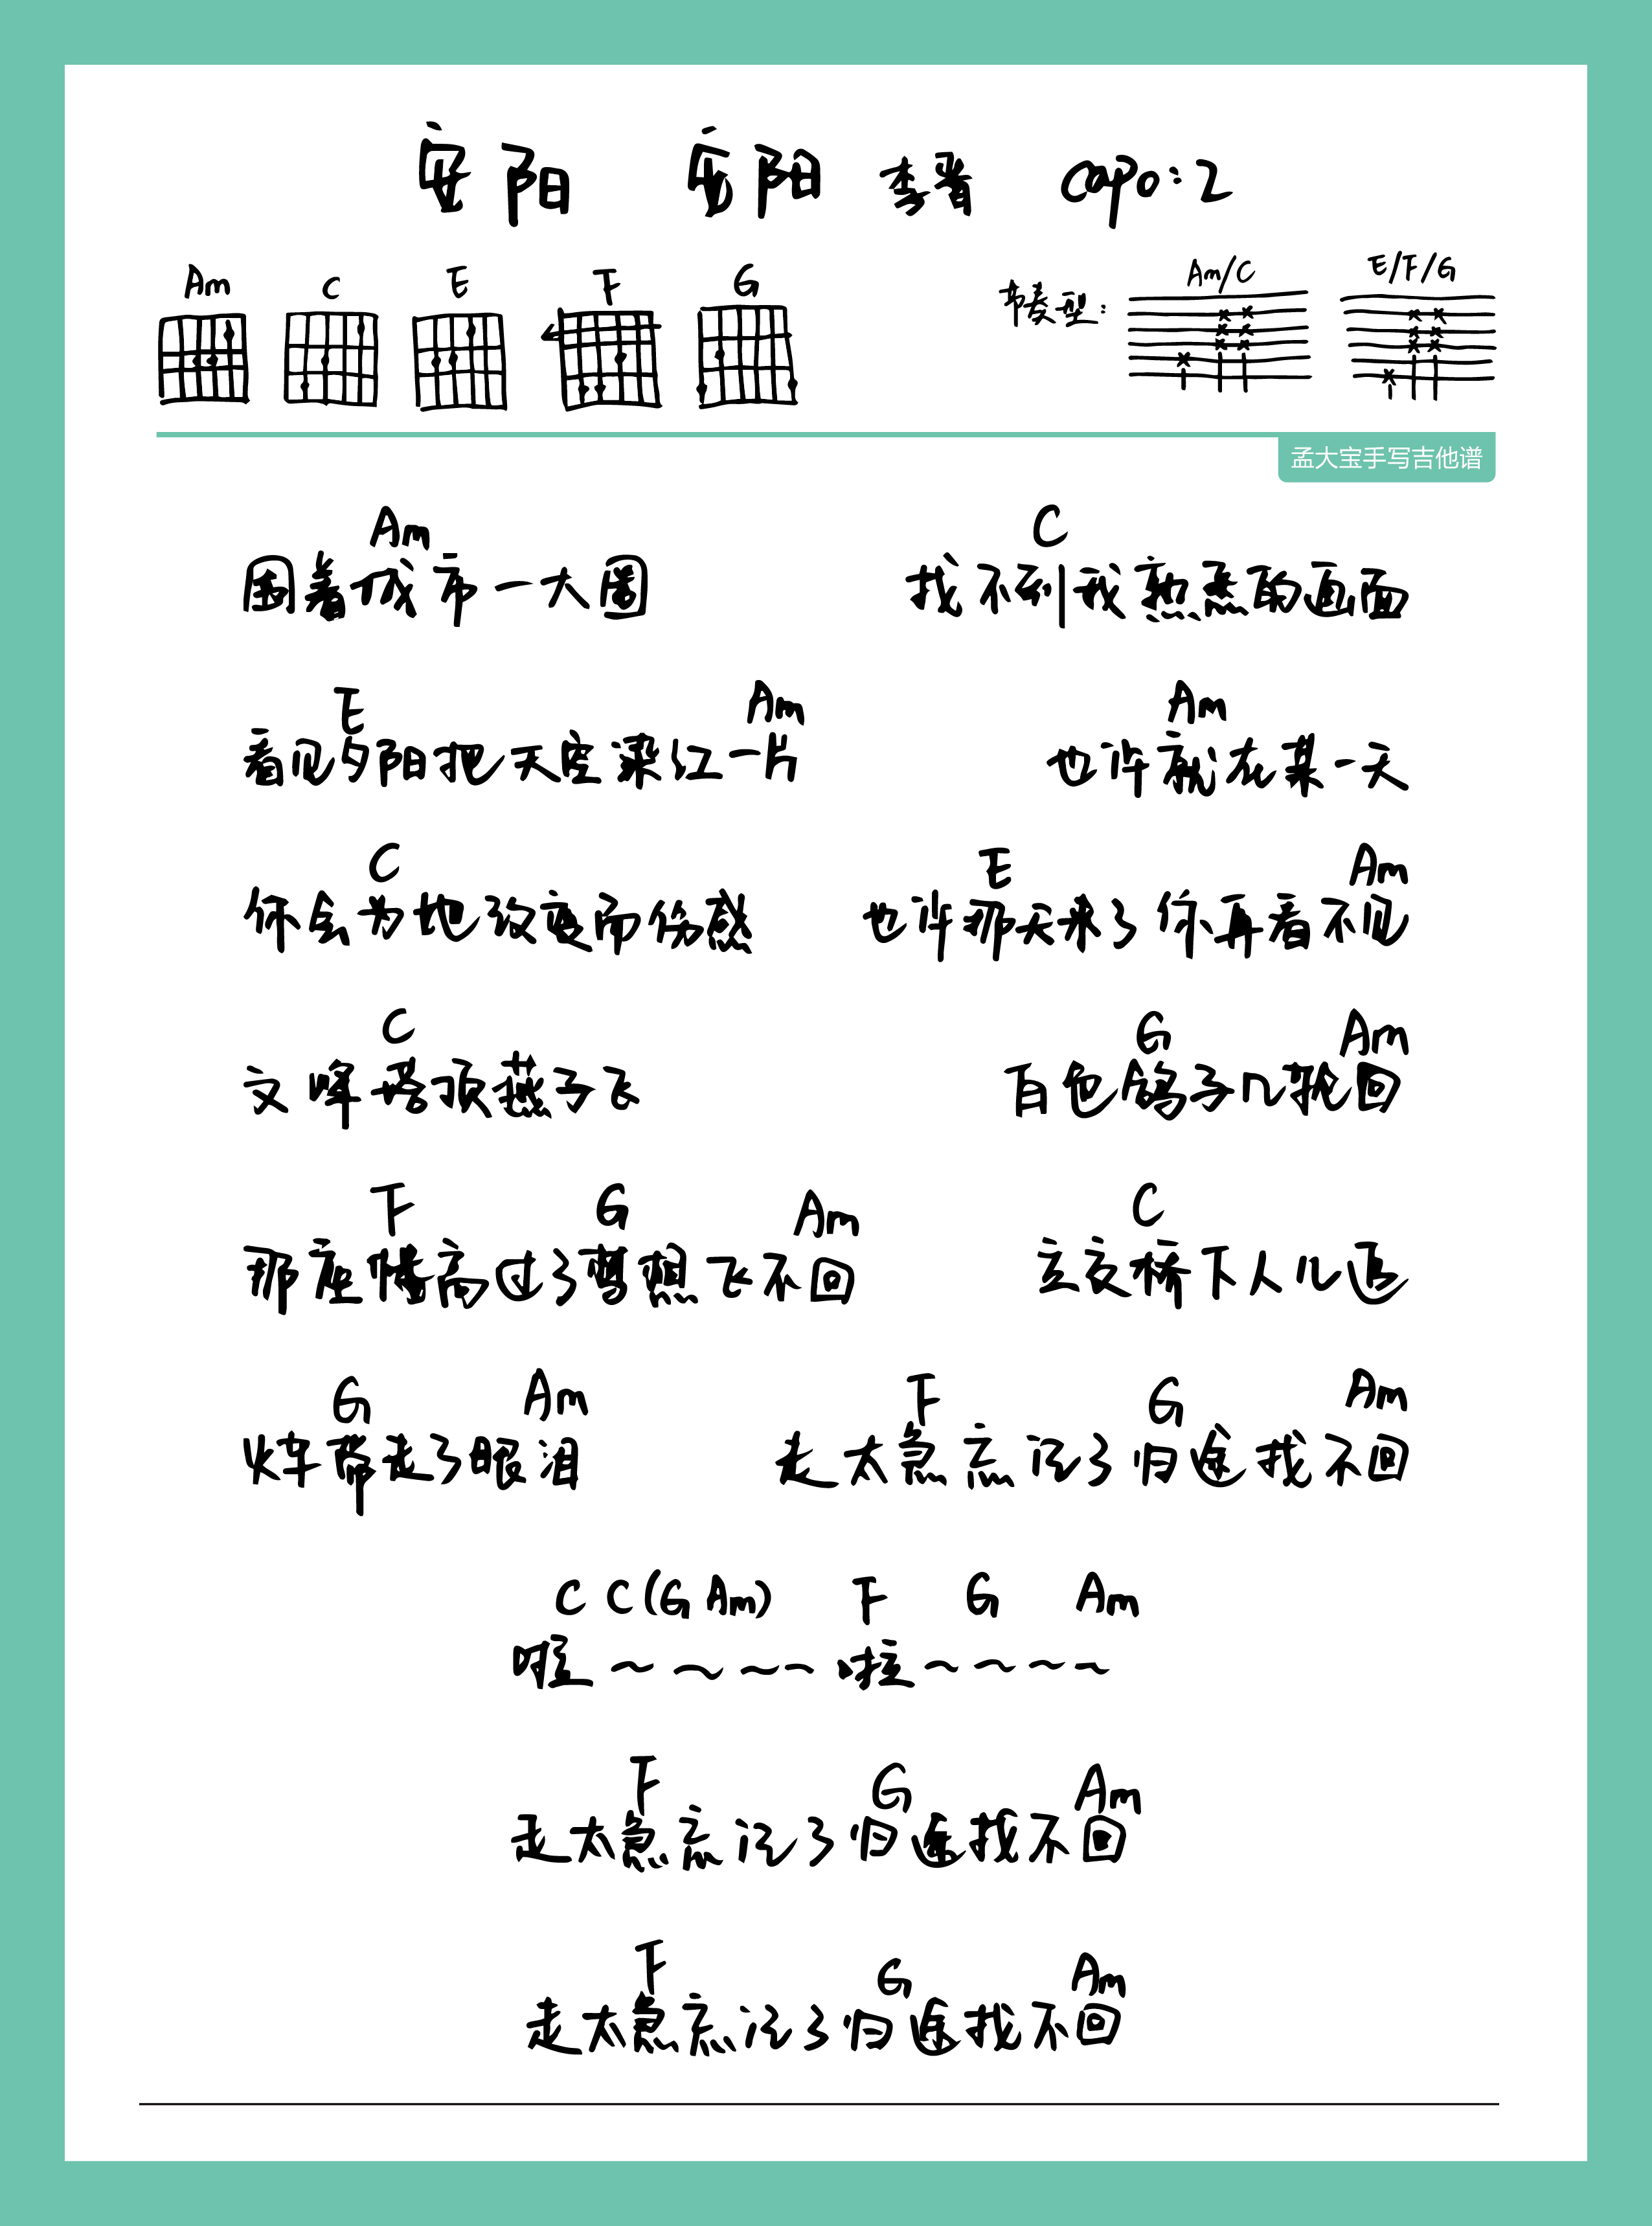 安阳 安阳 李晋 capo:2
Am C E F G 节奏型: Am/C E/F/G
孟大宝手写吉他谱
Am C
围着城市一大圈 找不到我熟悉的画面
E Am Am
看见夕阳把天空染红一片 也许就在某一天
C E Am
你会为她改变而伤感 也许那天来了你再看不见
C G Am
文峰塔顶燕子飞 白色鸽子几轮回
F G Am C
那座楼高过了梦想飞不回 立交桥下人儿追
G Am F G Am
火车带走了眼泪 走太急忘记了归途找不回
C C(G Am) F G Am
啦~~~~啦~~~~
F G Am
走太急忘记了归途找不回
F G Am
走太急忘记了归途找不回